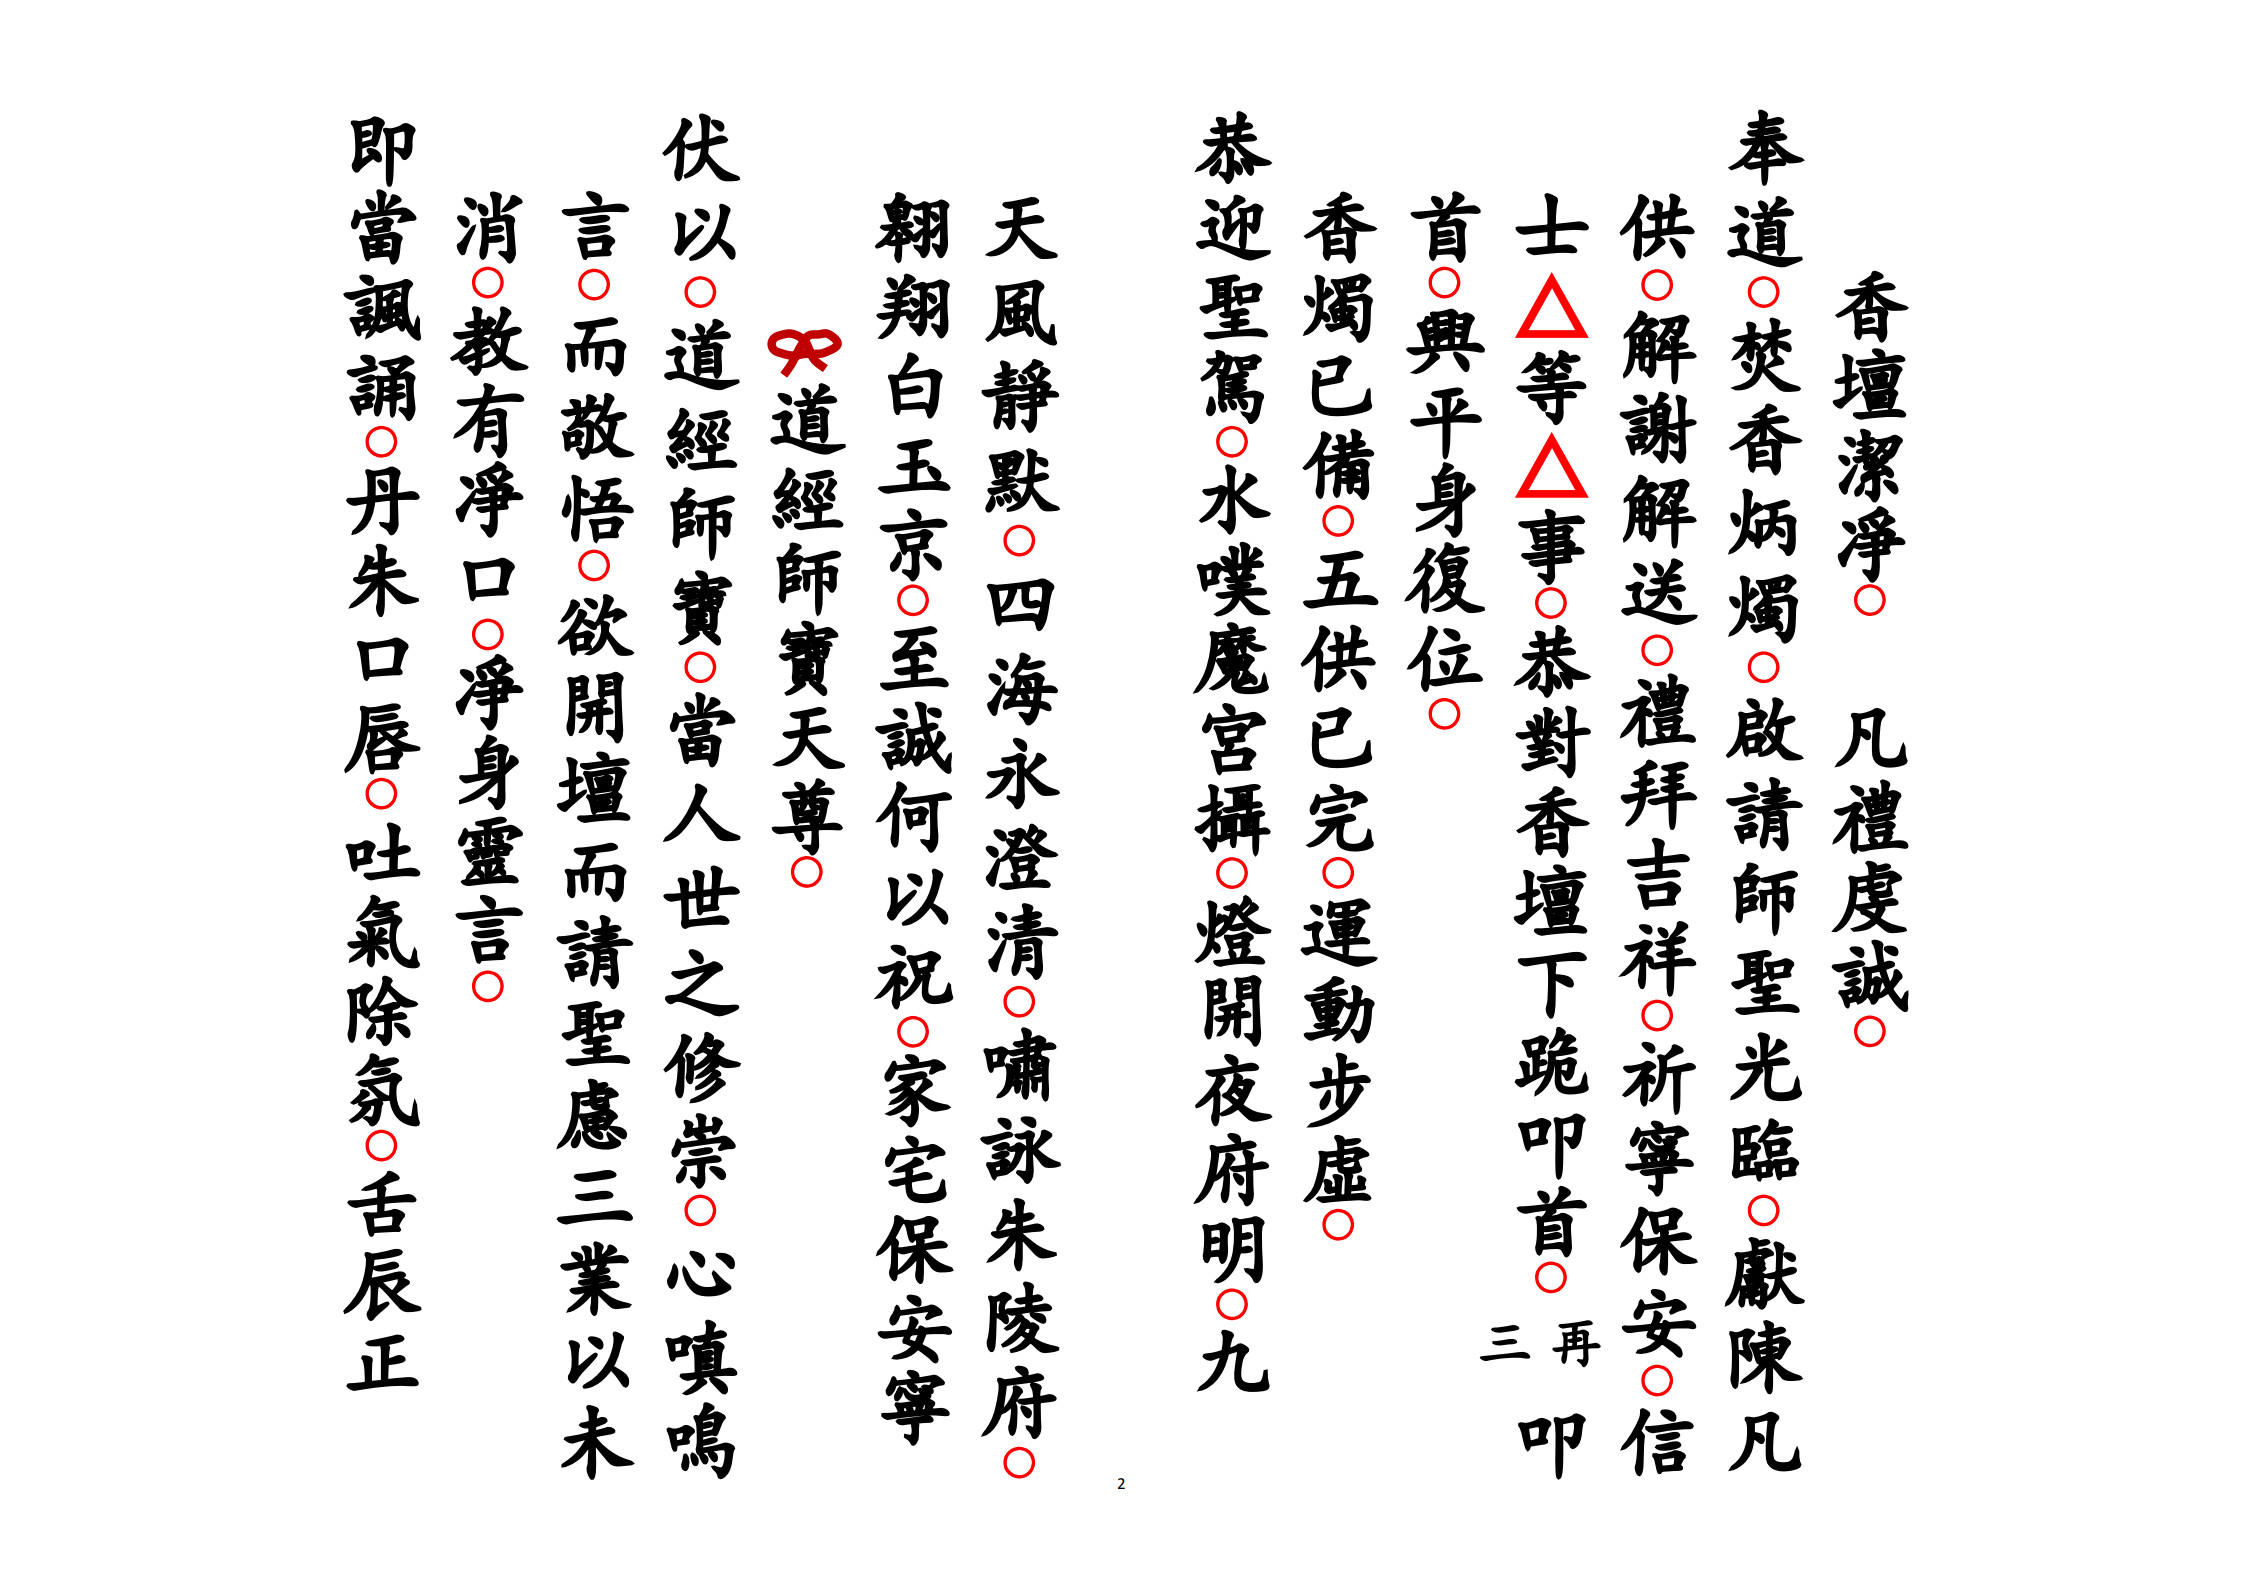 香壇潔凈○　凡禮虔誠○
奉道○焚香炳燭○啟請師聖光臨○獻陳凡
供○解謝解送○禮拜吉祥○祈寧保安○信
士△等△事○恭對香壇下跪叩首○再三叩
首○興平身復位○
香燭已備○五供已完○運動步虛○
恭迎聖駕○水噗魔宮攝○燈開夜府明○九
天風靜默○四海永澄清○嘯詠朱陵府○
翱翔白玉京○至誠何以祝○家宅保安寧
道經師寶天尊○
伏以○道經師寶○當人世之修崇○心嗔鳴
言○而敬悟○欲開壇而請聖慮三業以未
消○教有凈口○凈身靈言○
即當諷誦○丹朱口唇○吐氣除氛○舌辰正
2